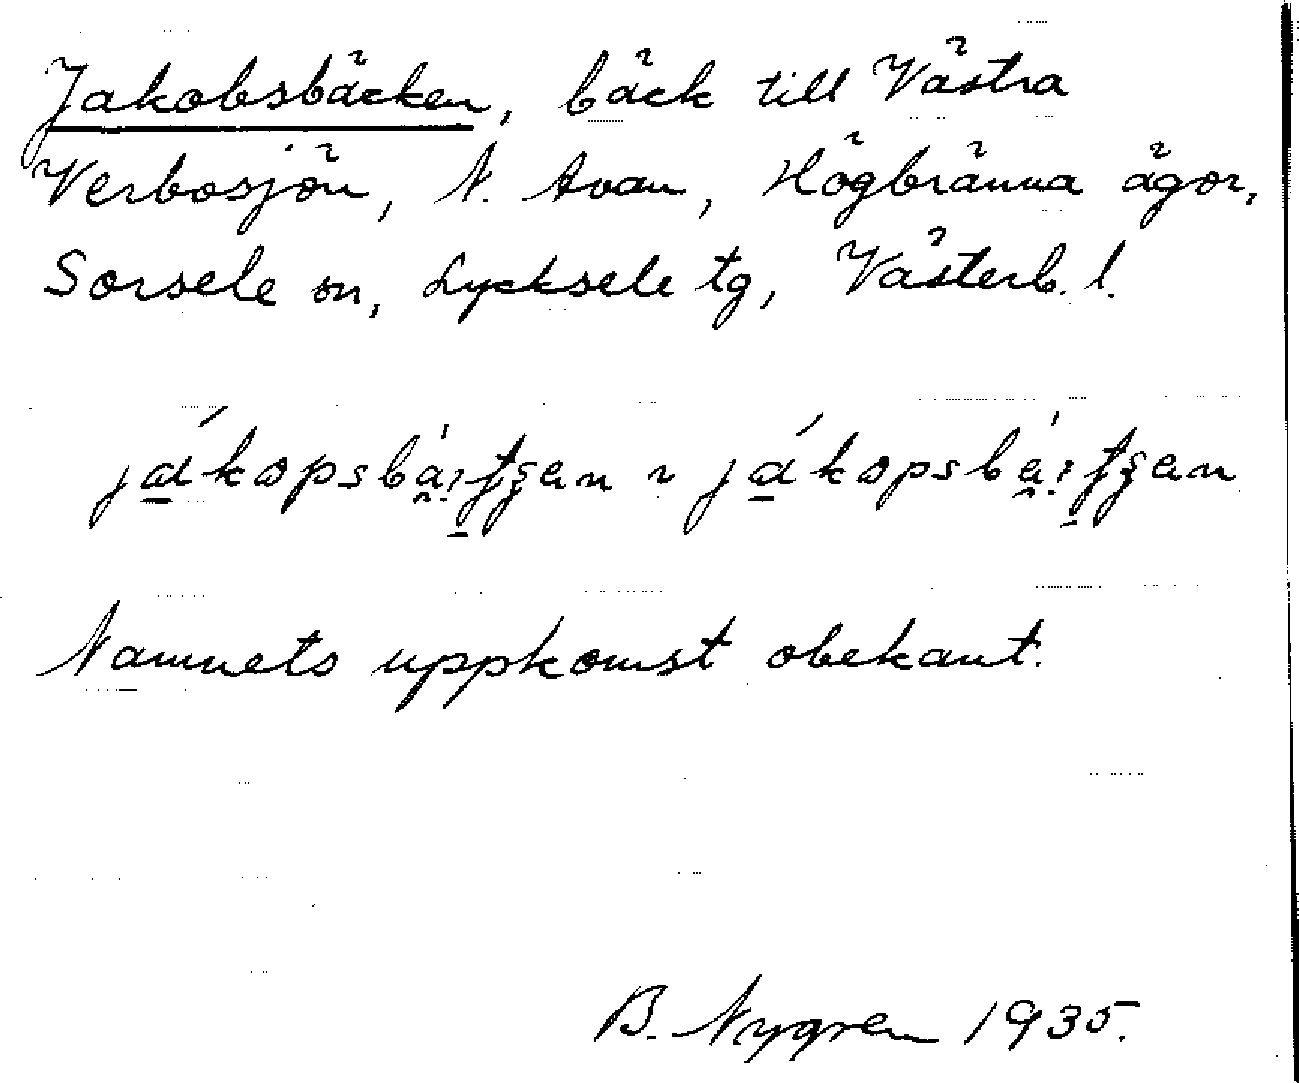 Jakobsbäcken, bäck till Västra
Verbosjön, N. Avan, Högbränna ägor,
Sorsele sn, Lycksele tg, Västerb. l.
Namnets uppkomst obekant.
B. Nygren 1935.